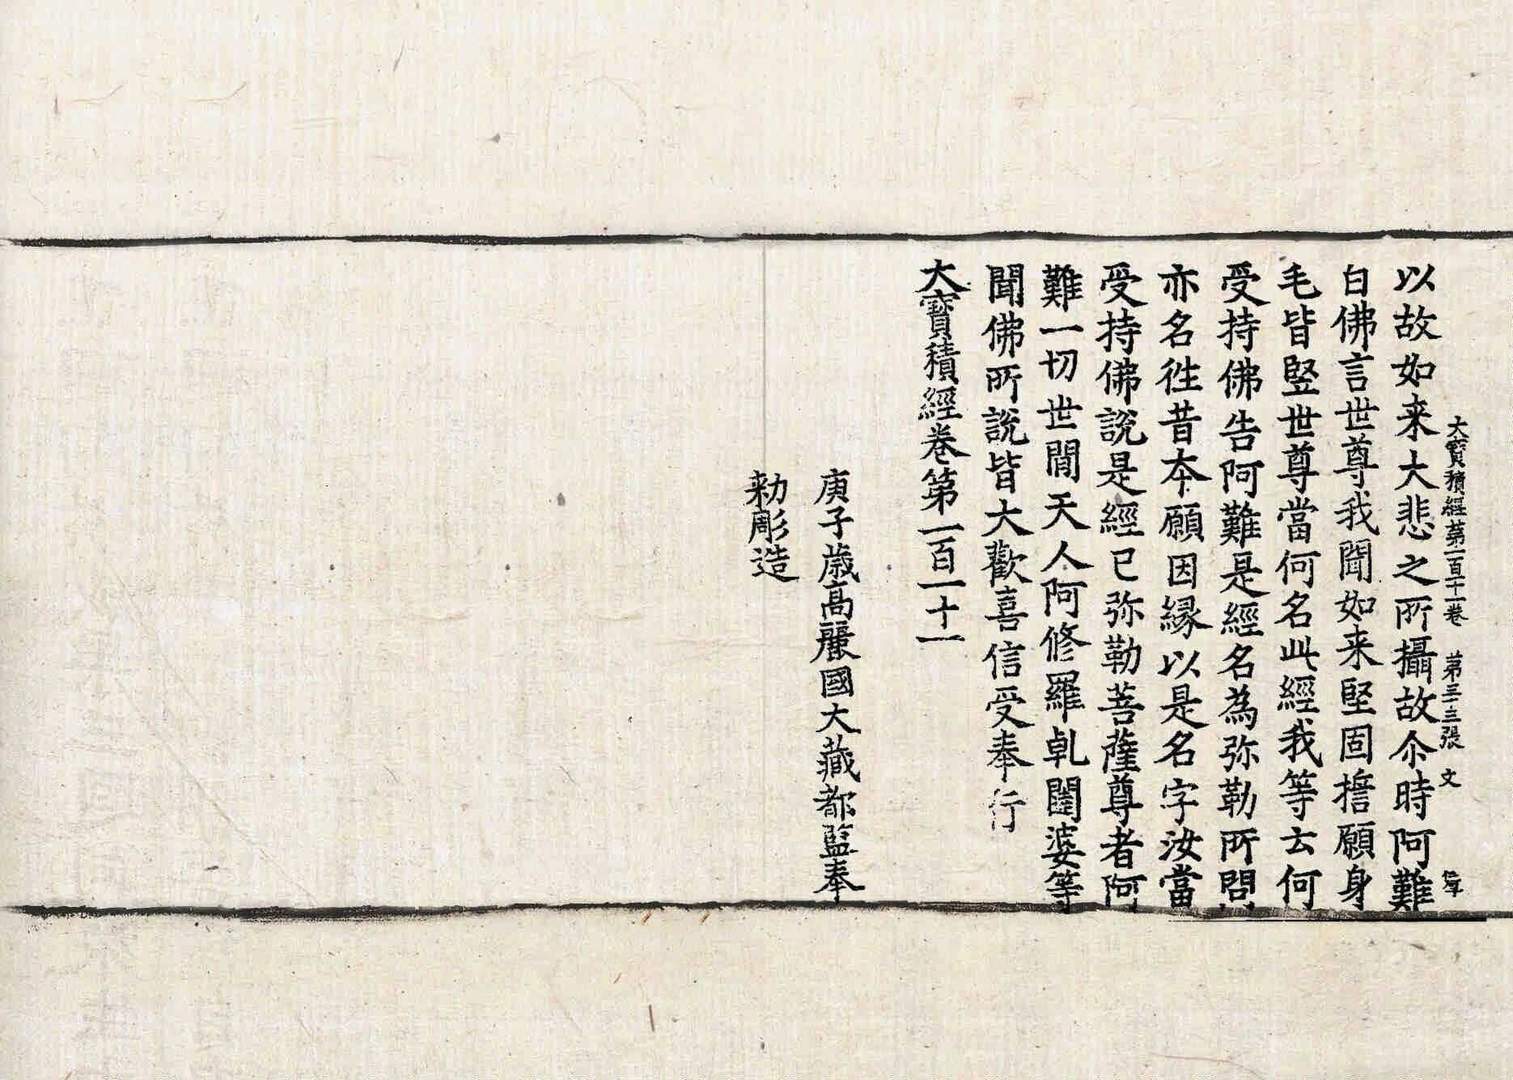 大寶積經第一百十一卷　第三十三張　文
以故如来大悲之所攝故尒時阿難
白佛言世尊我聞如来堅固擔願身
毛皆竪世尊當何名此經我等云何
受持佛告阿難是經名為弥勒所問
亦名徃昔夲願因縁以是名字汝當
受持佛說是經已弥勒菩薩尊者阿
難一切世間天人阿修羅乹闥婆等
聞佛所說皆大歡喜信受奉行
大寶積經卷第一百一十一
庚子歲高麗國大藏都監奉
勑彫造